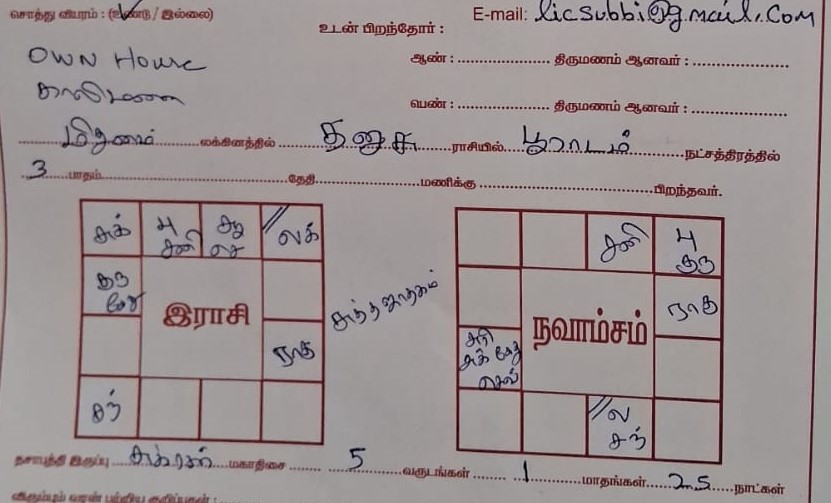 சொத்து விபரம் : (உண்டு / இல்லை) E-mail: licsubbi@gmail.com
உடன் பிறந்தோர் :
OWN House ஆண் : திருமணம் ஆனவர் :
காலிமனை
பெண் : திருமணம் ஆனவர் :
மிதுனம் லக்கினத்தில் தனுசு ராசியில் பூராடம் நட்சத்திரத்தில்
3 பாதம் தேதி மணிக்கு பிறந்தவர்.
சுக் பு சனி செ லக் சனி பு குரு
குரு கேது
இராசி சுத்த ஜாதகம் நவாம்சம் ராகு
ராகு
சுக் கேது
சந் ல சந்
தசாபுத்தி இருப்பு சுக்ரன் மகாதிசை 5 வருடங்கள் 1 மாதங்கள் 25 நாட்கள்